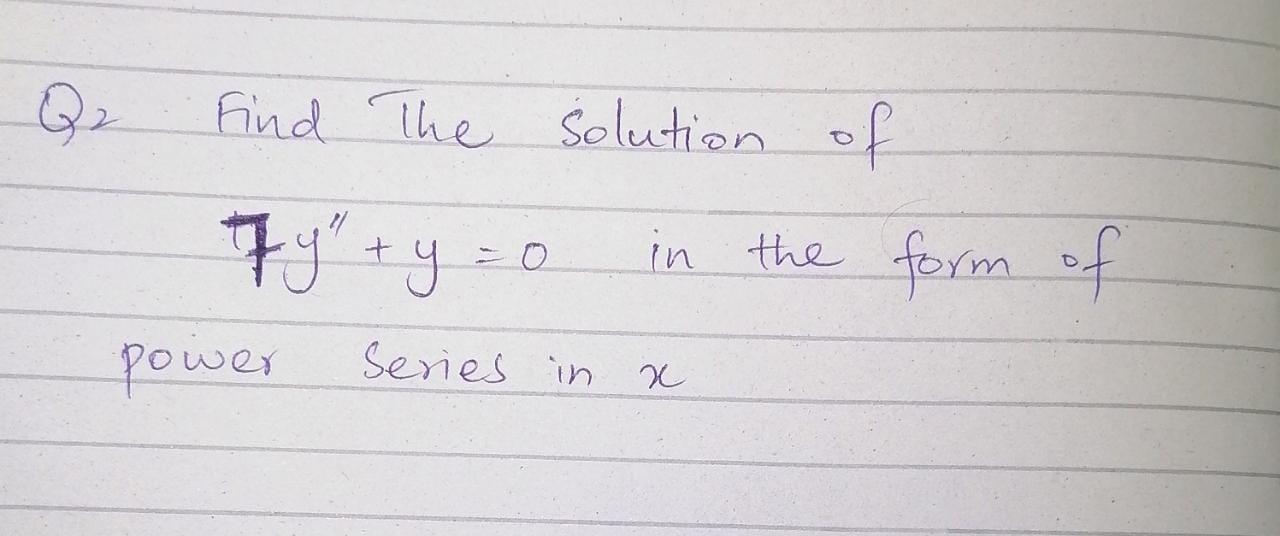 Q2 Find The Solution of
7y" + y = 0 in the form of
power Series in x